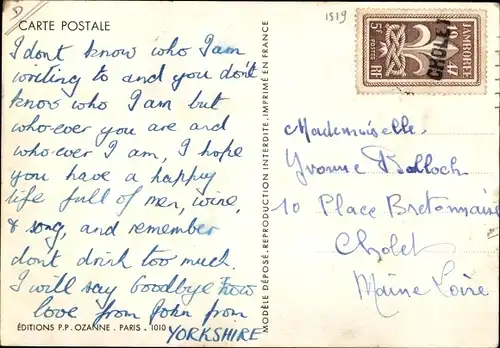 CARTE POSTALE
I dont know who I am
writing to and you don't
know who I am but
who-ever you are and
who-ever I am, I hope
you have a happy
life full of men, wine,
& song, and remember
dont drink too much.
I will say Goodbye now
love from John from
YORKSHIRE
ÉDITIONS P.P. OZANNE - PARIS - 1010
MODÈLE DÉPOSÉ. REPRODUCTION INTERDITE. IMPRIMÉ EN FRANCE
1519
JAMBOREE
1947
5F POSTES RF
CHOLET
Mademoiselle
Yvonne Bolloch
10 Place Bretonnaise
Cholet
Maine Loire